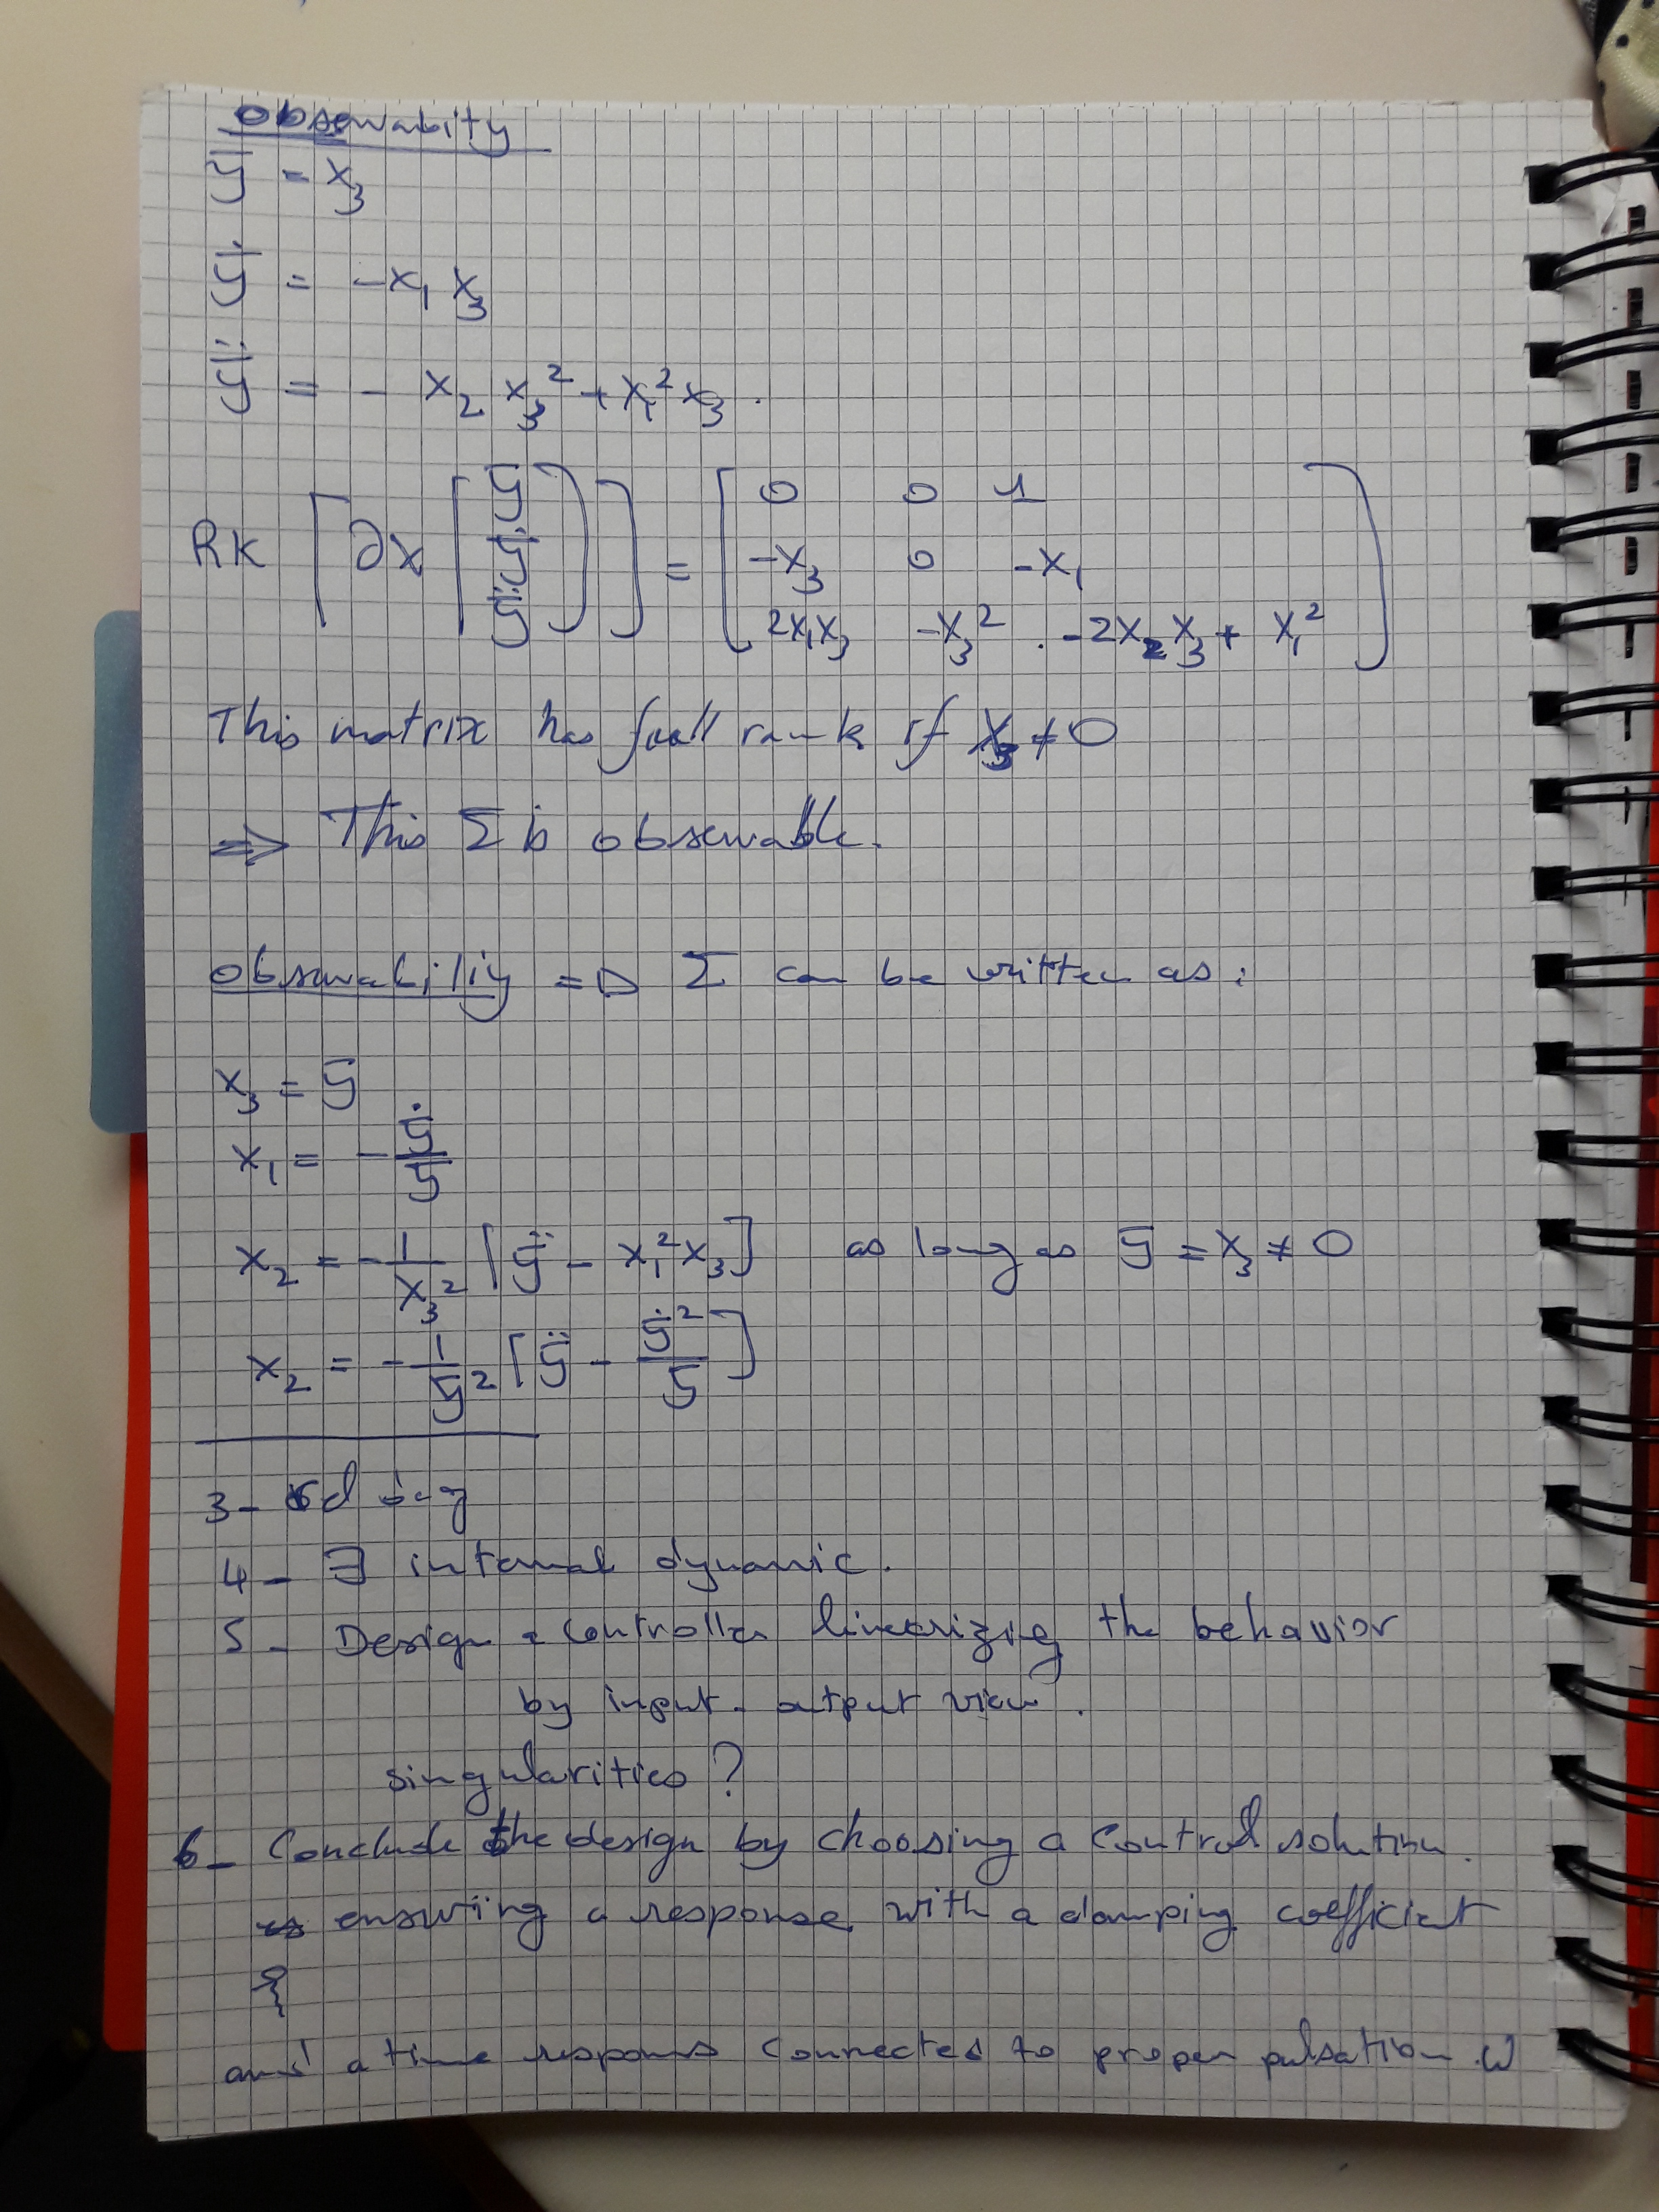 Observability
y = x₃
ẏ = -x₁ x₃
ÿ = - x₂ x₃² + x₁² x₃ .
Rk [∂x [y ẏ ÿ]] = [0 0 1
-x₃ 0 -x₁
2x₁x₃ -x₃² . -2x₂x₃ + x₁²]
This matrix has full rank if x₃ ≠ 0
⇒ This Σ is observable.
observabiliy => Σ can be written as :
x₃ = y
x₁ = - ẏ/y
x₂ = - 1/x₃² [ÿ - x₁² x₃] as long as y = x₃ ≠ 0
x₂ = - 1/y² [ÿ - ẏ²/y]
3-
4- ∃ internal dynamic.
5- Design a controller linearizing the behavior
by input-output view.
singularities ?
6- Conclude the design by choosing a control solution.
ensuring a response with a damping coefficient
ξ
and a time response connected to proper pulsation ω